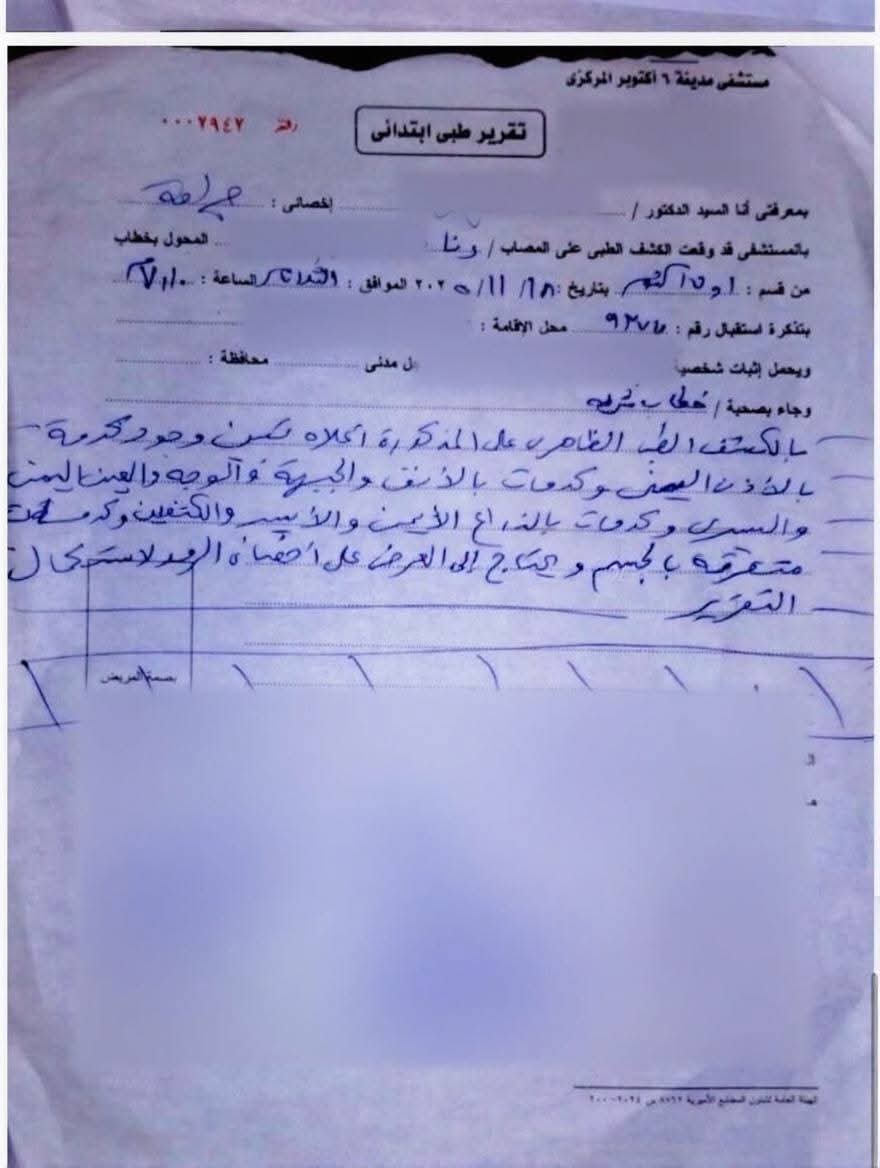 مستشفى مدينة ٦ أكتوبر المركزى
تقرير طبى ابتدائى
رقم ٠٠٠٢٩٤٢
بمعرفتى أنا السيد الدكتور / إخصائى : جراحة
بالمستشفى قد وقعت الكشف الطبى على المصاب / المحول بخطاب
من قسم : أول أكتوبر بتاريخ : ١٨ / ١١ / ٢٠٢٥ الموافق : الثلاثاء الساعة :
بتذكرة استقبال رقم : محل الإقامة :
ويحمل إثبات شخصية ل مدنى محافظة :
وجاء بصحبة / خطاب شرطة
بالكشف الطبى الظاهرى على المذكورة أعلاه تبين وجود كدمة
بالأذن اليمنى وكدمات بالأنف والجبهة والوجه والعين اليمنى
واليسرى وكدمات بالذراع الأيمن والأيسر والكتفين وكدمات
متفرقة بالجسم ويحتاج إلى العرض على أخصائى الرمد لاستكمال
التقرير
بصمة المريض
الهيئة العامة لشئون المطابع الأميرية ٨٨٦٢ س ٢٠٢٤-٢٠٠٠